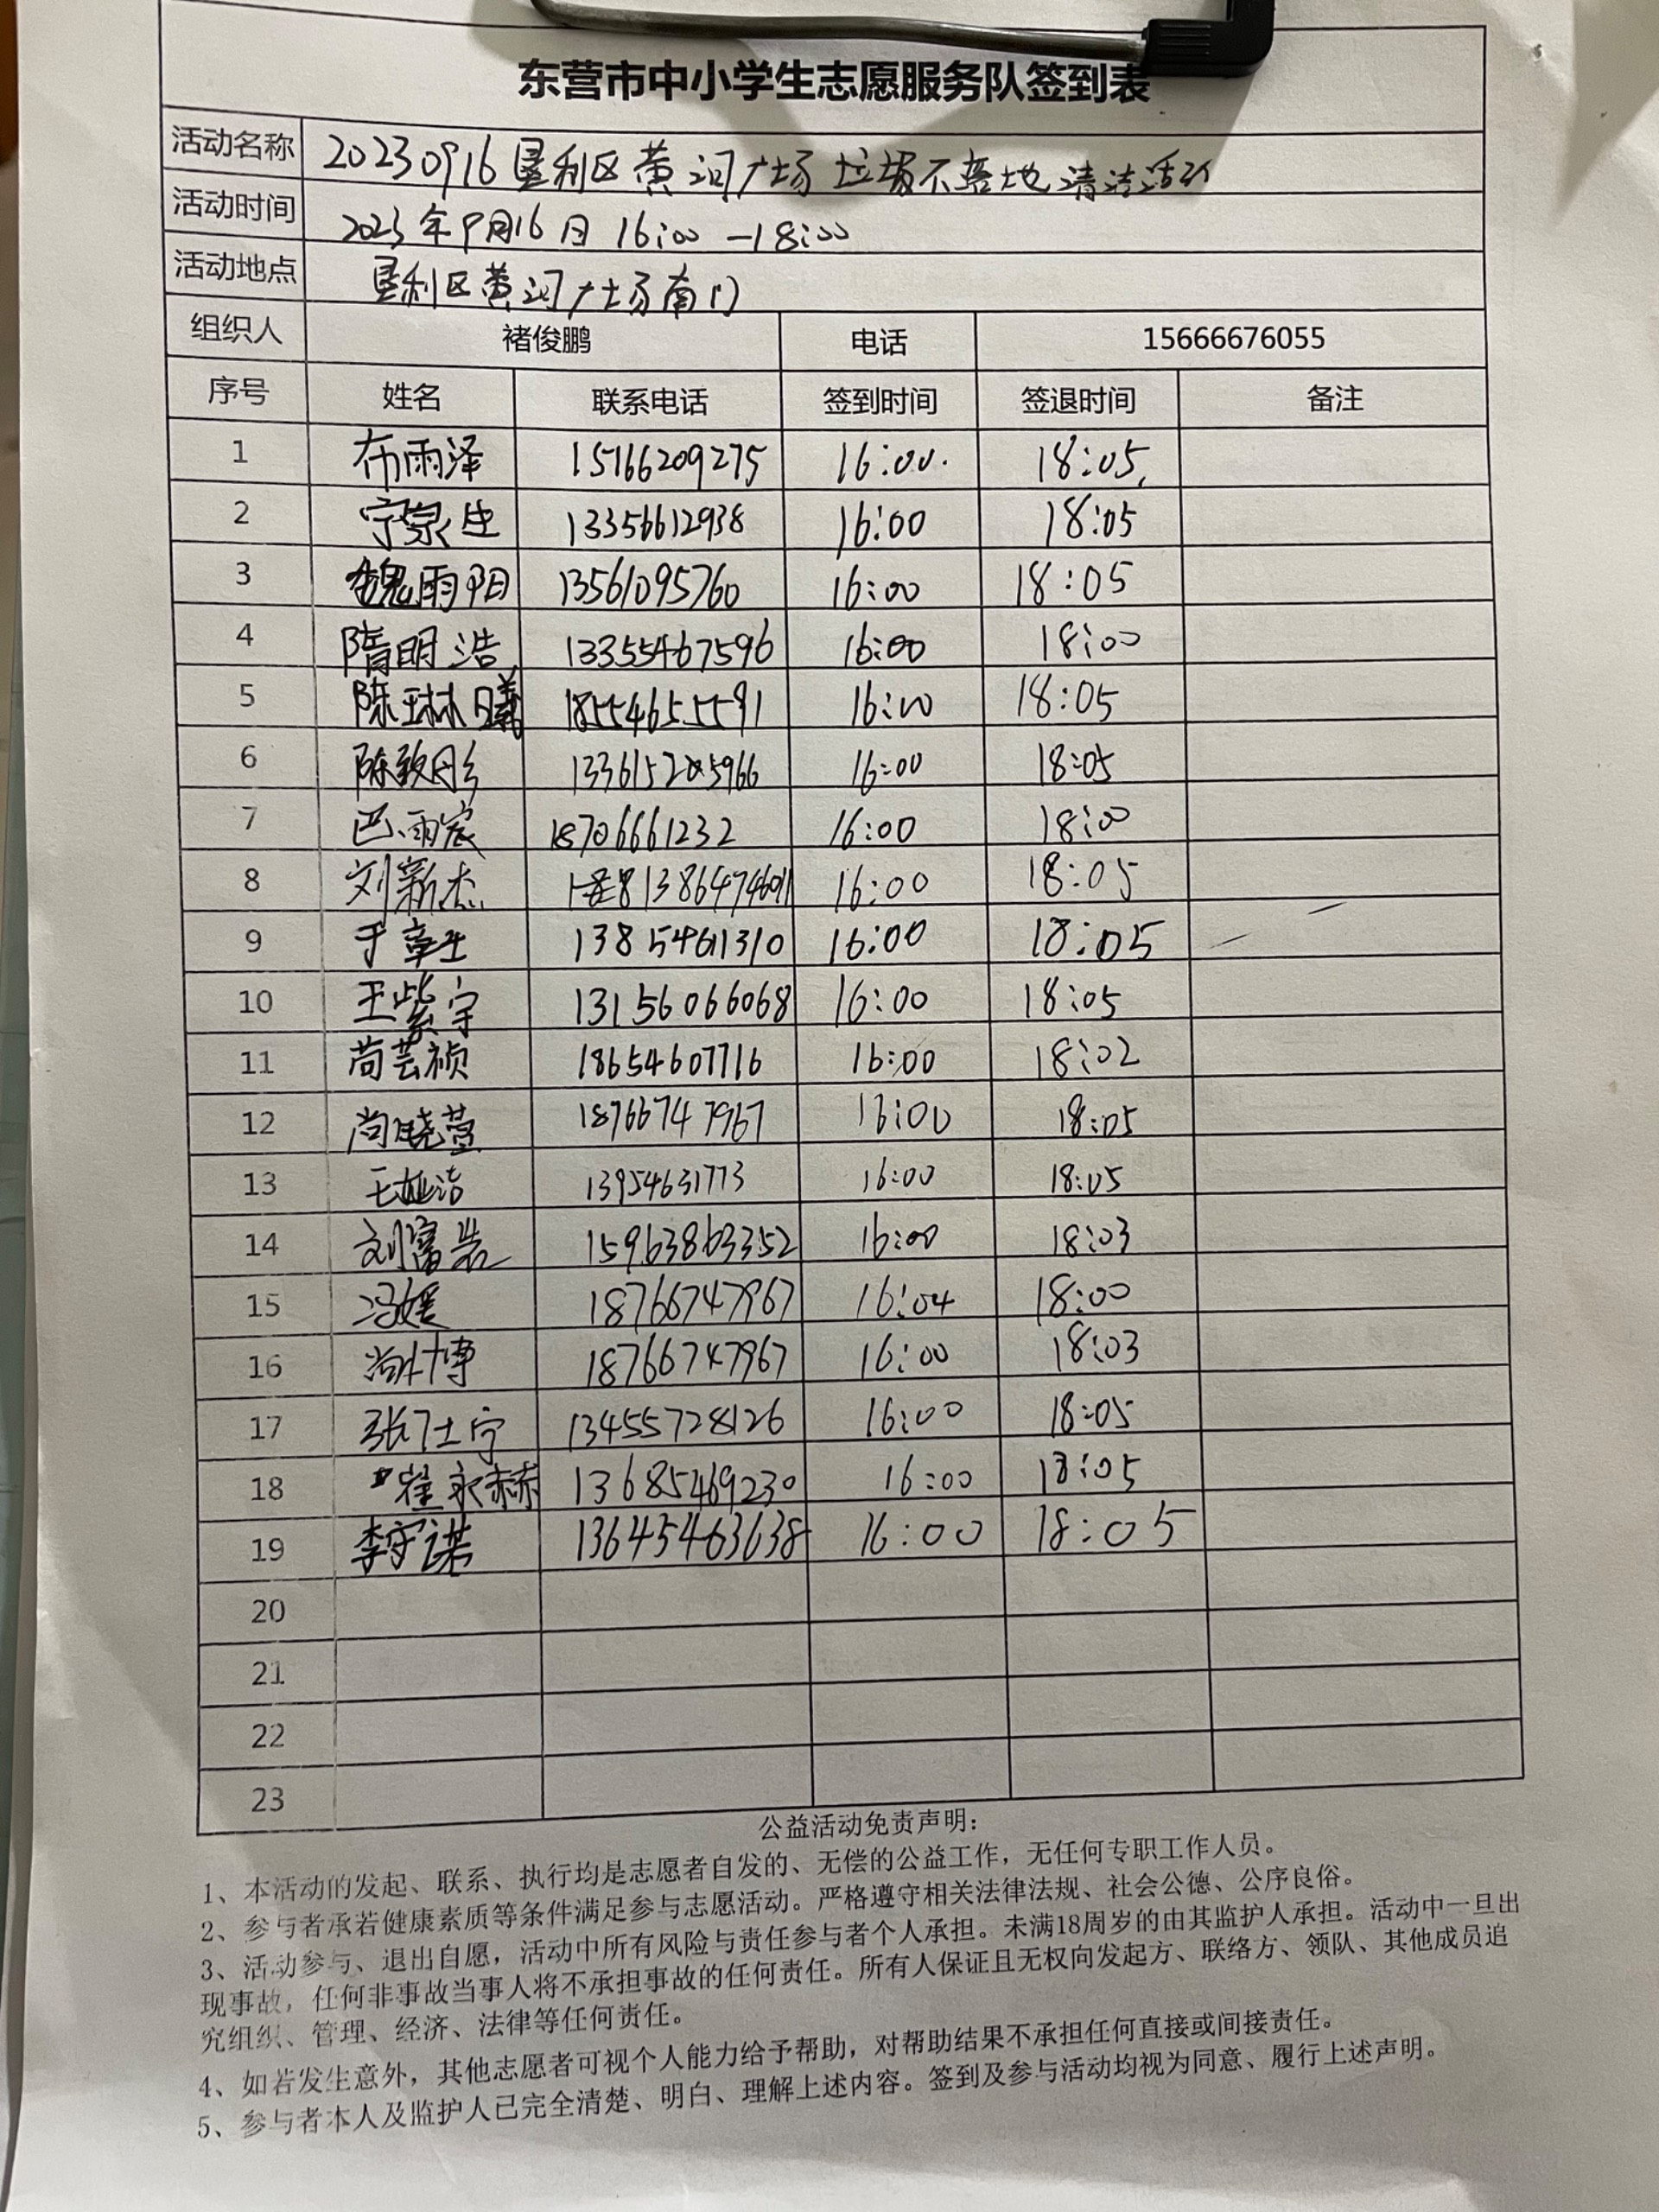 东营市中小学生志愿服务队签到表
活动名称 20230916垦利区黄河广场垃圾不落地清洁活动
活动时间 2023年9月16日 16:00-18:00
活动地点 垦利区黄河广场南门
组织人 褚俊鹏 电话 15666676055
序号 姓名 联系电话 签到时间 签退时间 备注
1 布雨泽 15166209275 16:00. 18:05.
2 宁泉 13356612938 16:00 18:05
3 魏雨阳 13561095760 16:00 18:05
4 隋明浩 13355467596 16:00 18:00
5 陈琳曦 18554655591 16:00 18:05
6 陈致彤 16:00 18:05
7 巴雨宸 18706661232 16:00 18:00
8 刘新杰 16:00 18:05
9 于章生 13854611310 16:00 18:05
10 王紫宇 13156066068 16:00 18:05
11 尚芸祯 18654607716 16:00 18:02
12 尚晓萱 18766747967 16:00 18:05
13 王 13954631773 16:00 18:05
14 刘富 15963863352 16:00 18:03
15 冯媛 18766747967 16:04 18:00
16 尚博 18766747967 16:00 18:03
17 张仕宁 13455728126 16:00 18:05
18 崔永赫 13685469230 16:00 18:05
19 李守诺 13645463638 16:00 18:05
20
21
22
23
公益活动免责声明：
1、本活动的发起、联系、执行均是志愿者自发的、无偿的公益工作，无任何专职工作人员。
2、参与者承若健康素质等条件满足参与志愿活动。严格遵守相关法律法规、社会公德、公序良俗。
3、活动参与、退出自愿，活动中所有风险与责任参与者个人承担。未满18周岁的由其监护人承担。活动中一旦出
现事故，任何非事故当事人将不承担事故的任何责任。所有人保证且无权向发起方、联络方、领队、其他成员追
究组织、管理、经济、法律等任何责任。
4、如若发生意外，其他志愿者可视个人能力给予帮助，对帮助结果不承担任何直接或间接责任。
5、参与者本人及监护人已完全清楚、明白、理解上述内容。签到及参与活动均视为同意、履行上述声明。